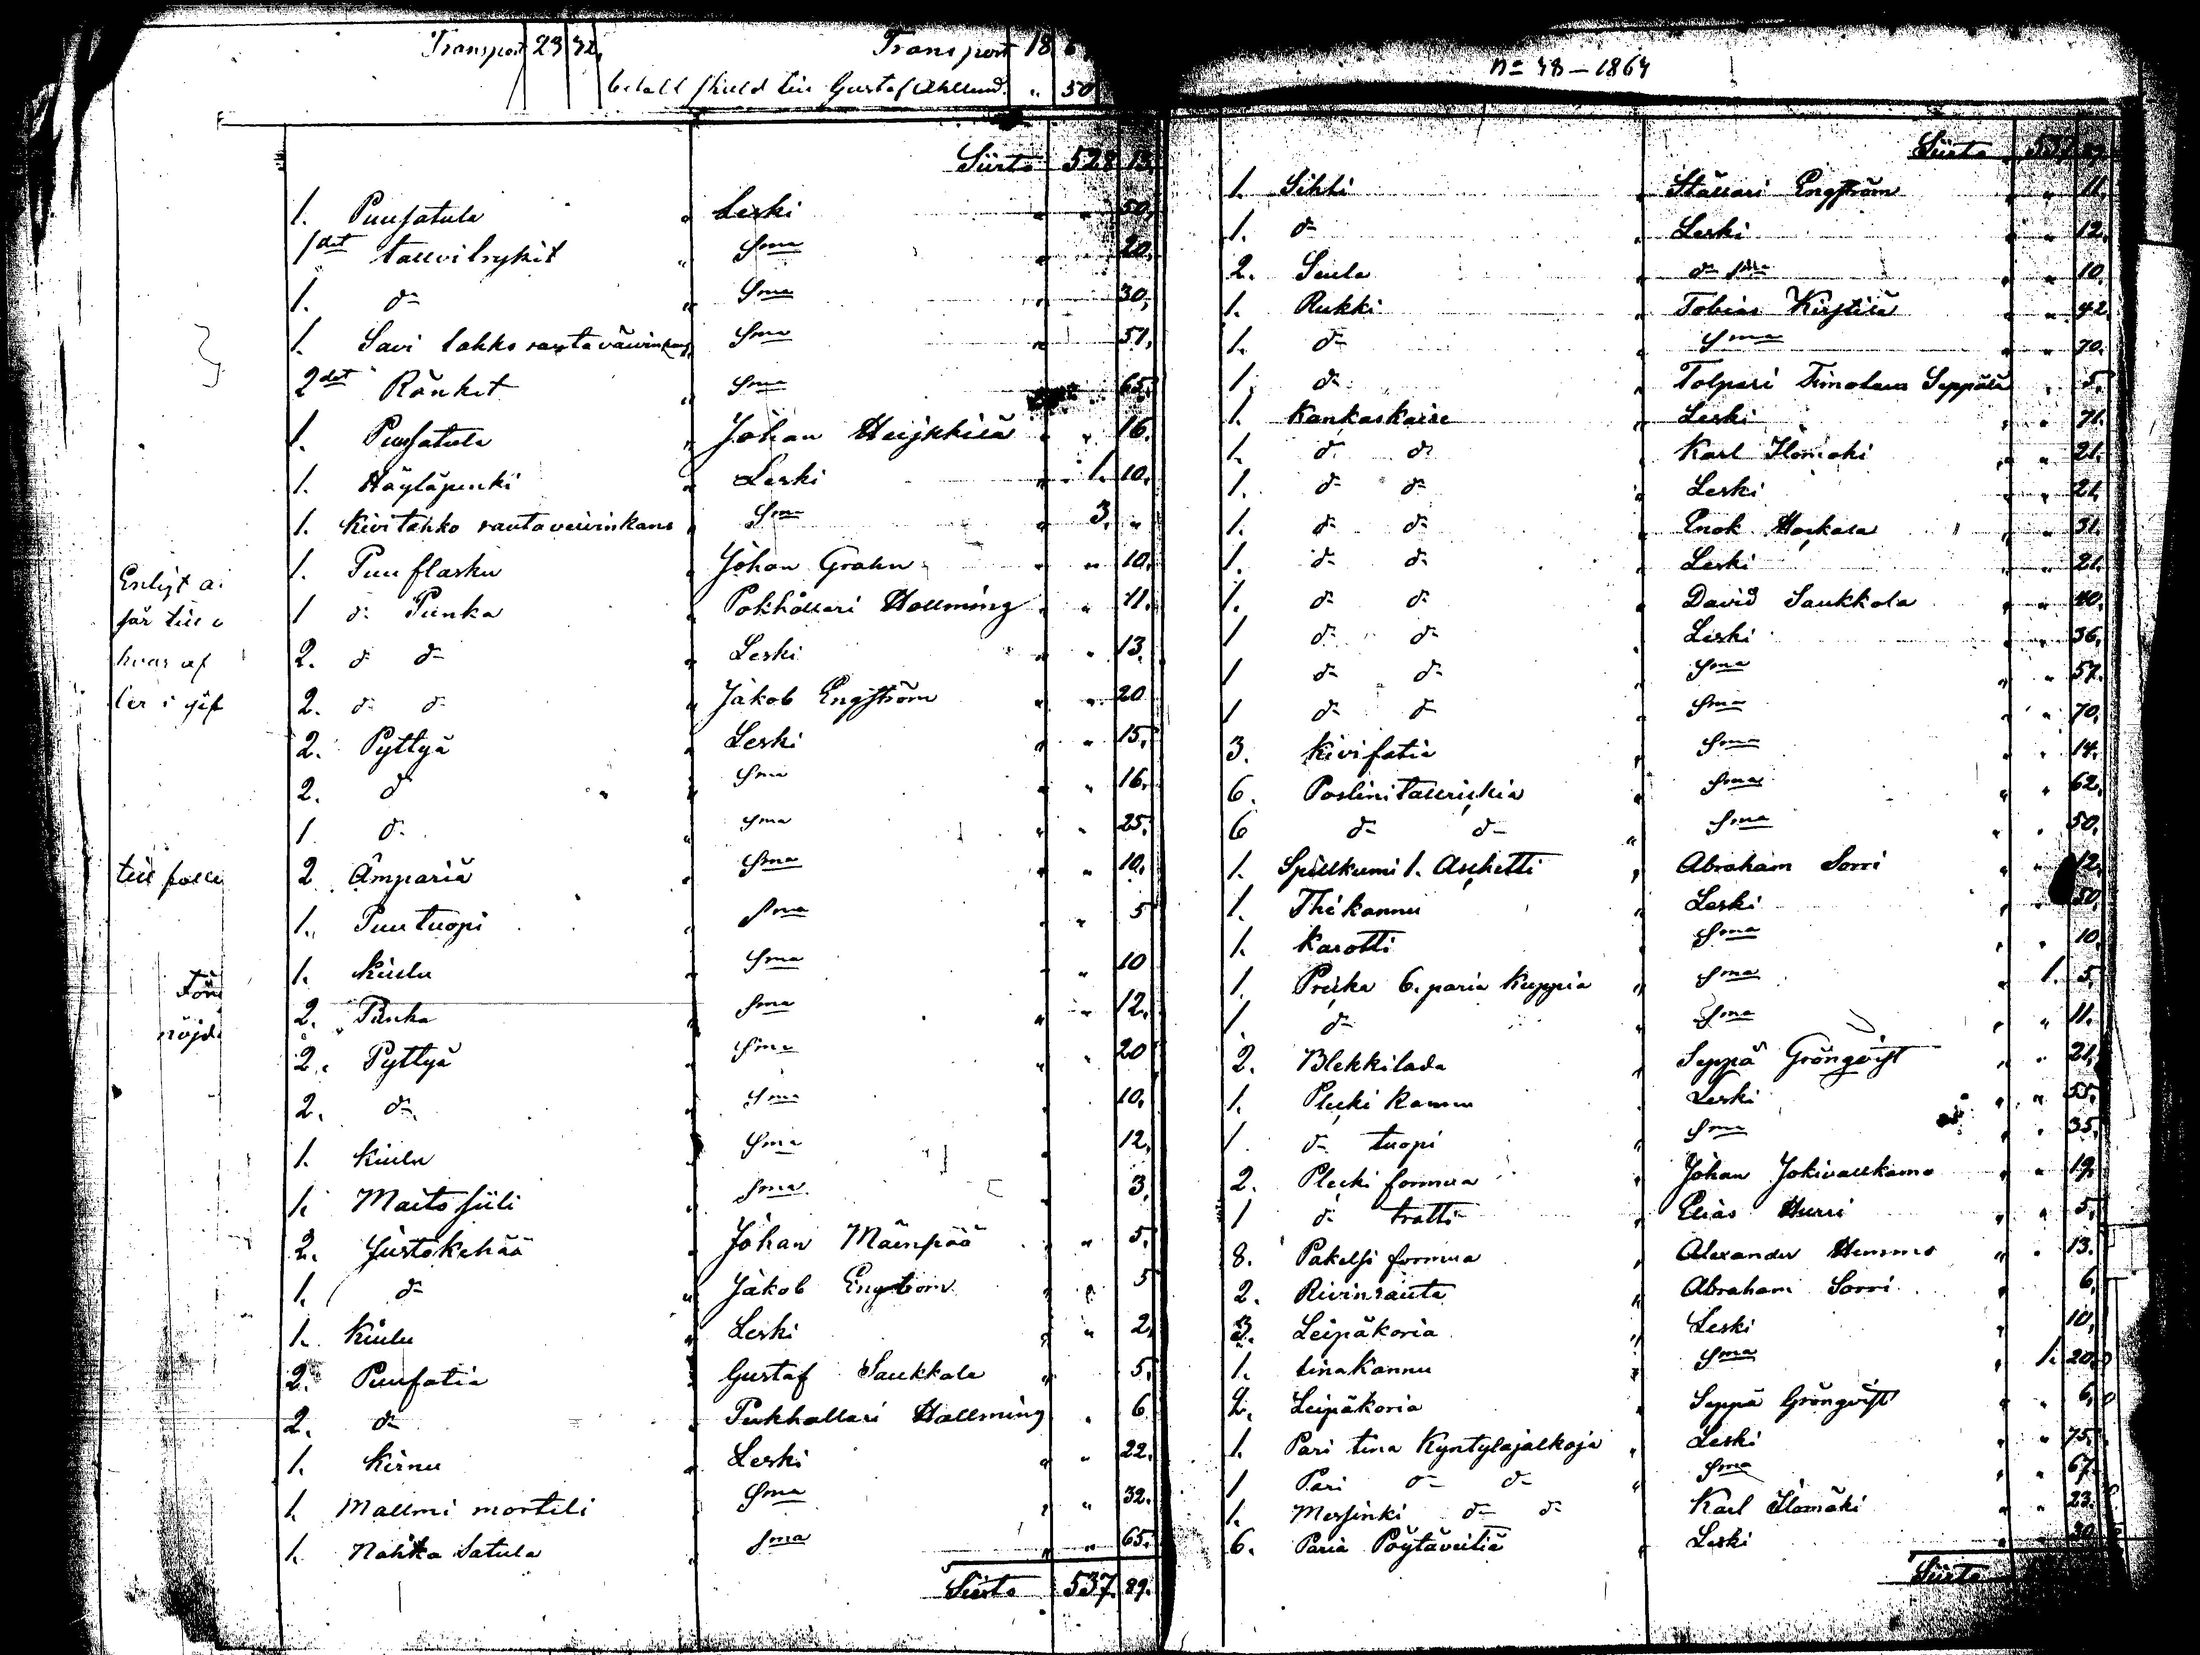 Transport 23 72,
Transport 18 6
betalt skuld till Gustaf Ahllund. " 50
Siirto 528 13.
1. Puusatula " Leski " " 50,
1 det tallvilrykit " Sma " 20,
1. do " Sma " 30,
1. Savi tahko rautaväivinkans Sma " 51,
2 det Ränkit " Sma 65.
1. Puusatula " Johan Heijkkilä " " 16.
1. Häyläpenki " Leski " 1. 10.
1. Kivitahko rautaveivinkans " Sma " 3. "
1. Puu flasku " Johan Grahn " " 10.
1 do Punka " Pokhållari Hollming " " 11.
2. do do " Leski " " 13.
2. do do " Jakob Engström " " 20
2. Pyttyä " Leski " " 15,
2. do " Sma " " 16.
1. do " Sma " " 25.
2 Ämpäriä " Sma " " 10,
1. Puutuopi " Sma " " 5
1. Kiulu " Sma " 10
2. Punka " Sma " " 12.
2. Pyttyä " Sma " " 20
2. do " Sma 10,
1. Kiulu " Sma 12,
1. Maitosiili " Sma " 3,
2. Juustokehää " Johan Mäenpää " " 5.
1. do " Jakob Engström " " 5
1. Kiulu " Leski " " 2,
2. Puufatia " Gustaf Saukkola " 5.
2. do " Pukhollari Hollming " 6
1. Kirnu " Leski " " 22.
1. Mallmi mortteli Sma " " 32.
1. Nahka Satula " Sma " " 65.
Siirto 537. 89.
Enligt a
får till
hvar af
ler i gif
till falle
För
nöjd
No 48 – 1864
Siirto 537 89
1. Sihti " Ställari Engström " " 11.
1. do " Leski " " 12.
2. Seula " do Sma " " 10.
1. Rukki " Tobias Kirstilä " " 42.
1. do " Sma " " 70.
1. do " Tolpari Timoteus Seppälä " 5.
1. Kankaskaise " Leski " " 71.
1. do do Karl Ilomäki " " 21.
1. do do " Leski " " 21,
1. do do " Enok Horkala " " 31.
1. do do " Leski " " 21.
1. do do " David Saukkola " " 40.
1 do do " Leski " " 36,
1 do do " Sma " " 57.
1 do do " Sma " " 70,
3. Kivifatia " Sma " " 14.
6. Poslinitallrickia " Sma " " 62.
6 do do " Sma " " 50,
1. Spillkumi 1. Aschetti " Abraham Sorri " " 12,
1. Thékannu " Leski " " 50,
1. Karotti " Sma " " 10
1. Pricka 6. paria Kuppia " Sma " 1. 5.
1. do " Sma " " 11.
2. Blekkilada " Seppä Grönqvist " " 21,
1. Plecki Kannu " Leski " " 55.
1. do tuopi " Sma " " 35.
2. Plecki formua " Johan Jokivallkama " " 19,
1 do tratti " Elias Hurri " " 5,
8. Pakelsi formua " Alexander Hemmo " " 13.
2. Rivinrauta " Abraham Sorri 6,
3. Leipäkoria " Leski " 10,
1. tinakannu " Sma " 1. 20.
2. Leipäkoria " Seppä Grönqvist " " 6,
1. Pari tina Kyntyläjalkoja " Leski " " 75.
1 Pari do do " Sma " " 67.
1. Messinki do do Karl Ilomäki " " 23.
6. Paria Pöytäveitiä " Leski " " 30
Siirto